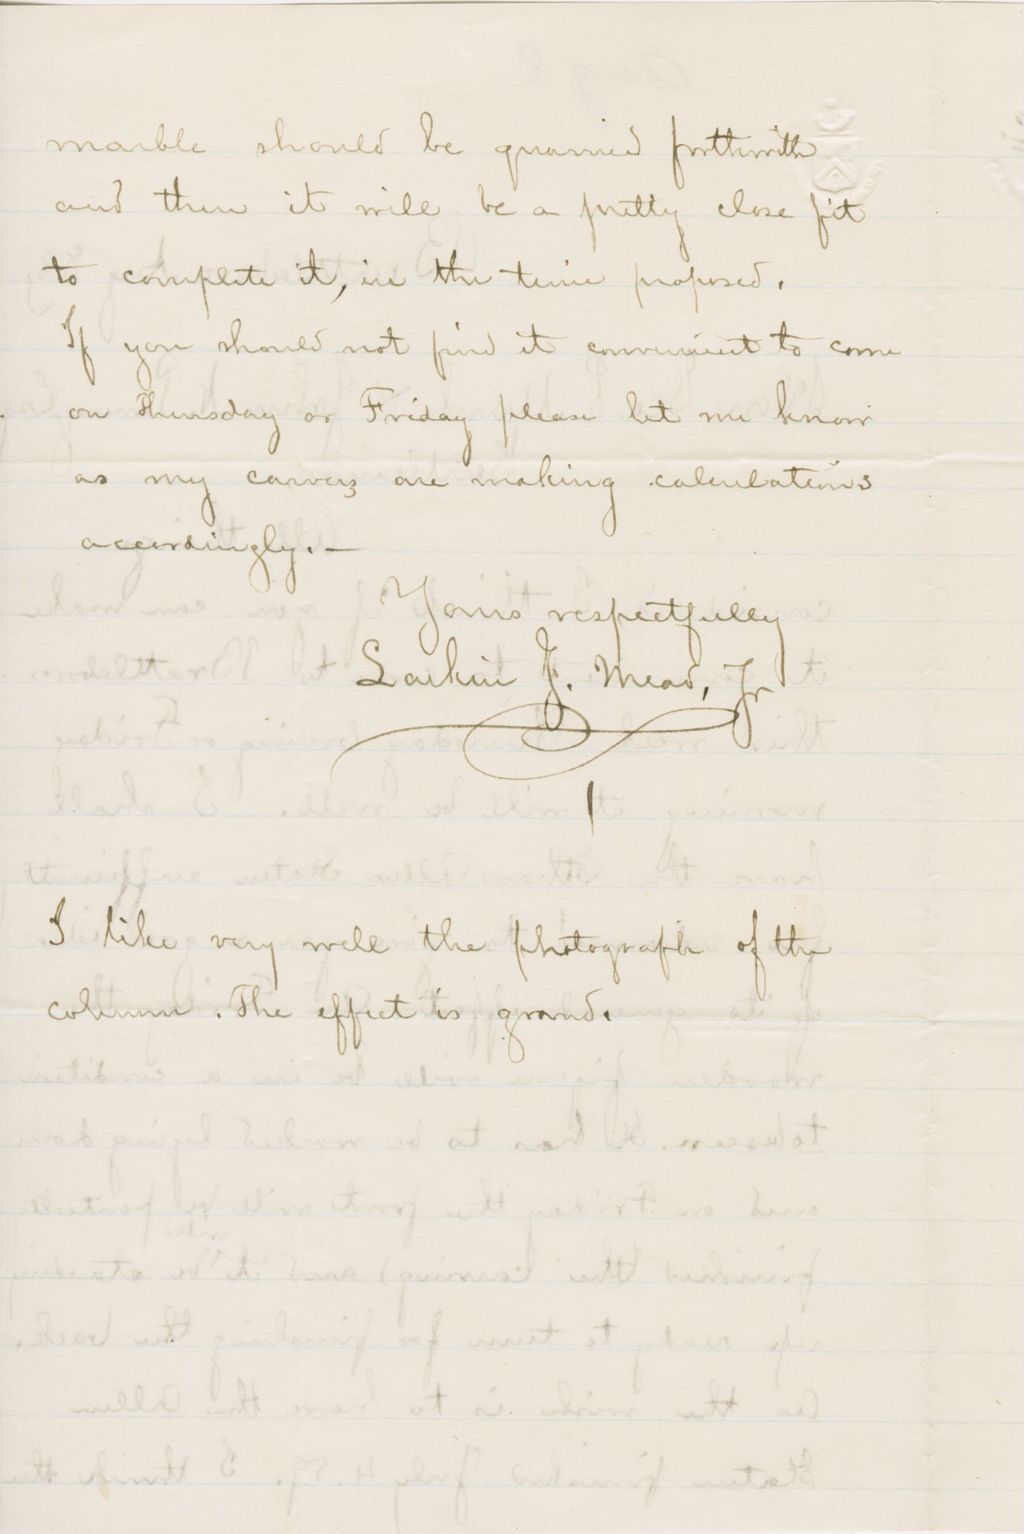 marble should be quarried forthwith
and then it will be a pretty close fit
to complete it, in the time proposed.
If you should not find it convenient to come
on Thursday or Friday please let me know
as my carvers are making calculations
accordingly. —
Yours respectfully
Larkin G. Mead, Jr
I like very well the photograph of the
column. The effect is grand.